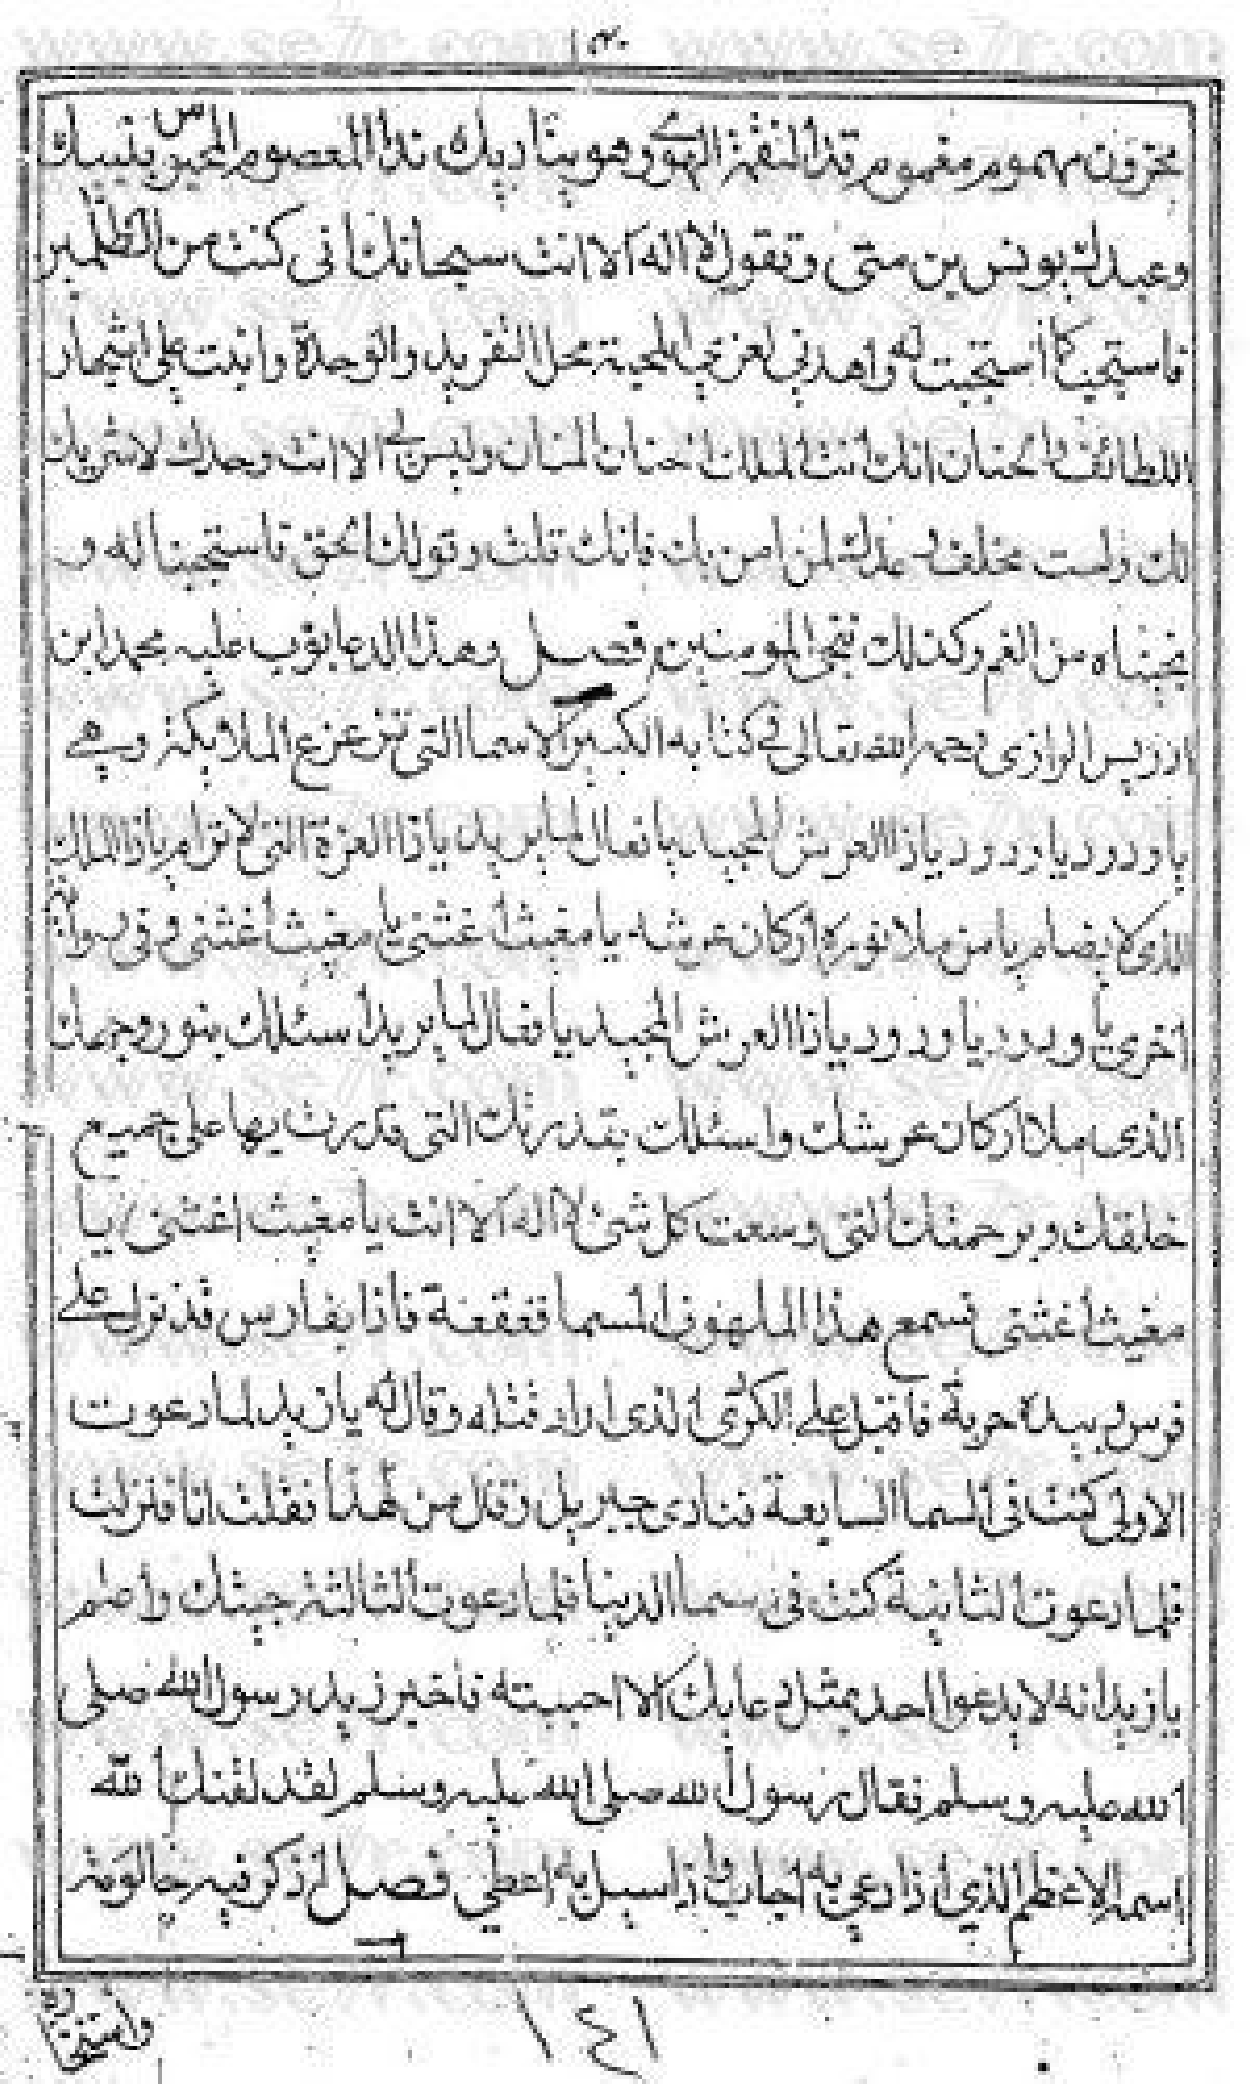 www.se7r.com www.se7r.com
محزون مهموم مغموم وهو يناديك ندا المعصوم نبيك
وعبدك يونس بن متى وتقول لا اله الا انت سبحانك انى كنت من الظلمين
فاستجب كما استجبت له واهدنى المحبة محل التفريد والوحدة وانبت على اشجار
اللطائف والحنان انك انت الملك الحنان المنان وليس لى الا انت وحدك لا شريك
لك ولست بخلف لمن امن بك فانك قلت وقولك الحق فاستجبنا له و
نجيناه من الغم وكذالك ننجى المومنين فصل وهذا الدعا بوب عليه محمد ابن
ادريس الرازى رحمه الله تعالى فى كتابه الكبير الاسما التى تزعزع الملايكة وهى
يا ودود يا ودود ياذا العرش المجيد يا فعال لما يريد ياذا العزة التى لا ترام ياذا الملك
الذى لا يضام يا من ملا نوره اركان عرشه يا مغيث أغثنى يا مغيث أغثنى وفى رواية
اخرى يا ودود يا ودود ياذا العرش المجيد يا فعال لما يريد أسئلك بنور وجهك
الذى ملا اركان عرشك واسئلك بقدرتك التى قدرت بها على جميع
خلقك وبرحمتك التى وسعت كل شئ لا اله الا انت يا مغيث اغثنى يا
مغيث أغثنى فسمع هذا الملهوف السما قعقعة فاذا بفارس قد نزل على
فرس بيده حربة فاقبل على الكردى الذى اراد قتله وقال له يا زيد لما دعوت
الاولى كنت فى السما السابعة فنادى جبريل وقال من لهذا فقلت انا فنزلت
فلما دعوت الثانية كنت فى سما الدينا فلما دعوت الثالثة جيتك واعلم
يا زيد انه لا يدعوا احد بمثل دعايك الا احببته فأخبر زيد رسول الله صلى
الله عليه وسلم فقال رسول الله صلى الله عليه وسلم لقد لقنك الله
اسمه الاعظم الذي اذا دعي به اجاب واذا سيل به اعطي فصل اذكر فيه
١٤١